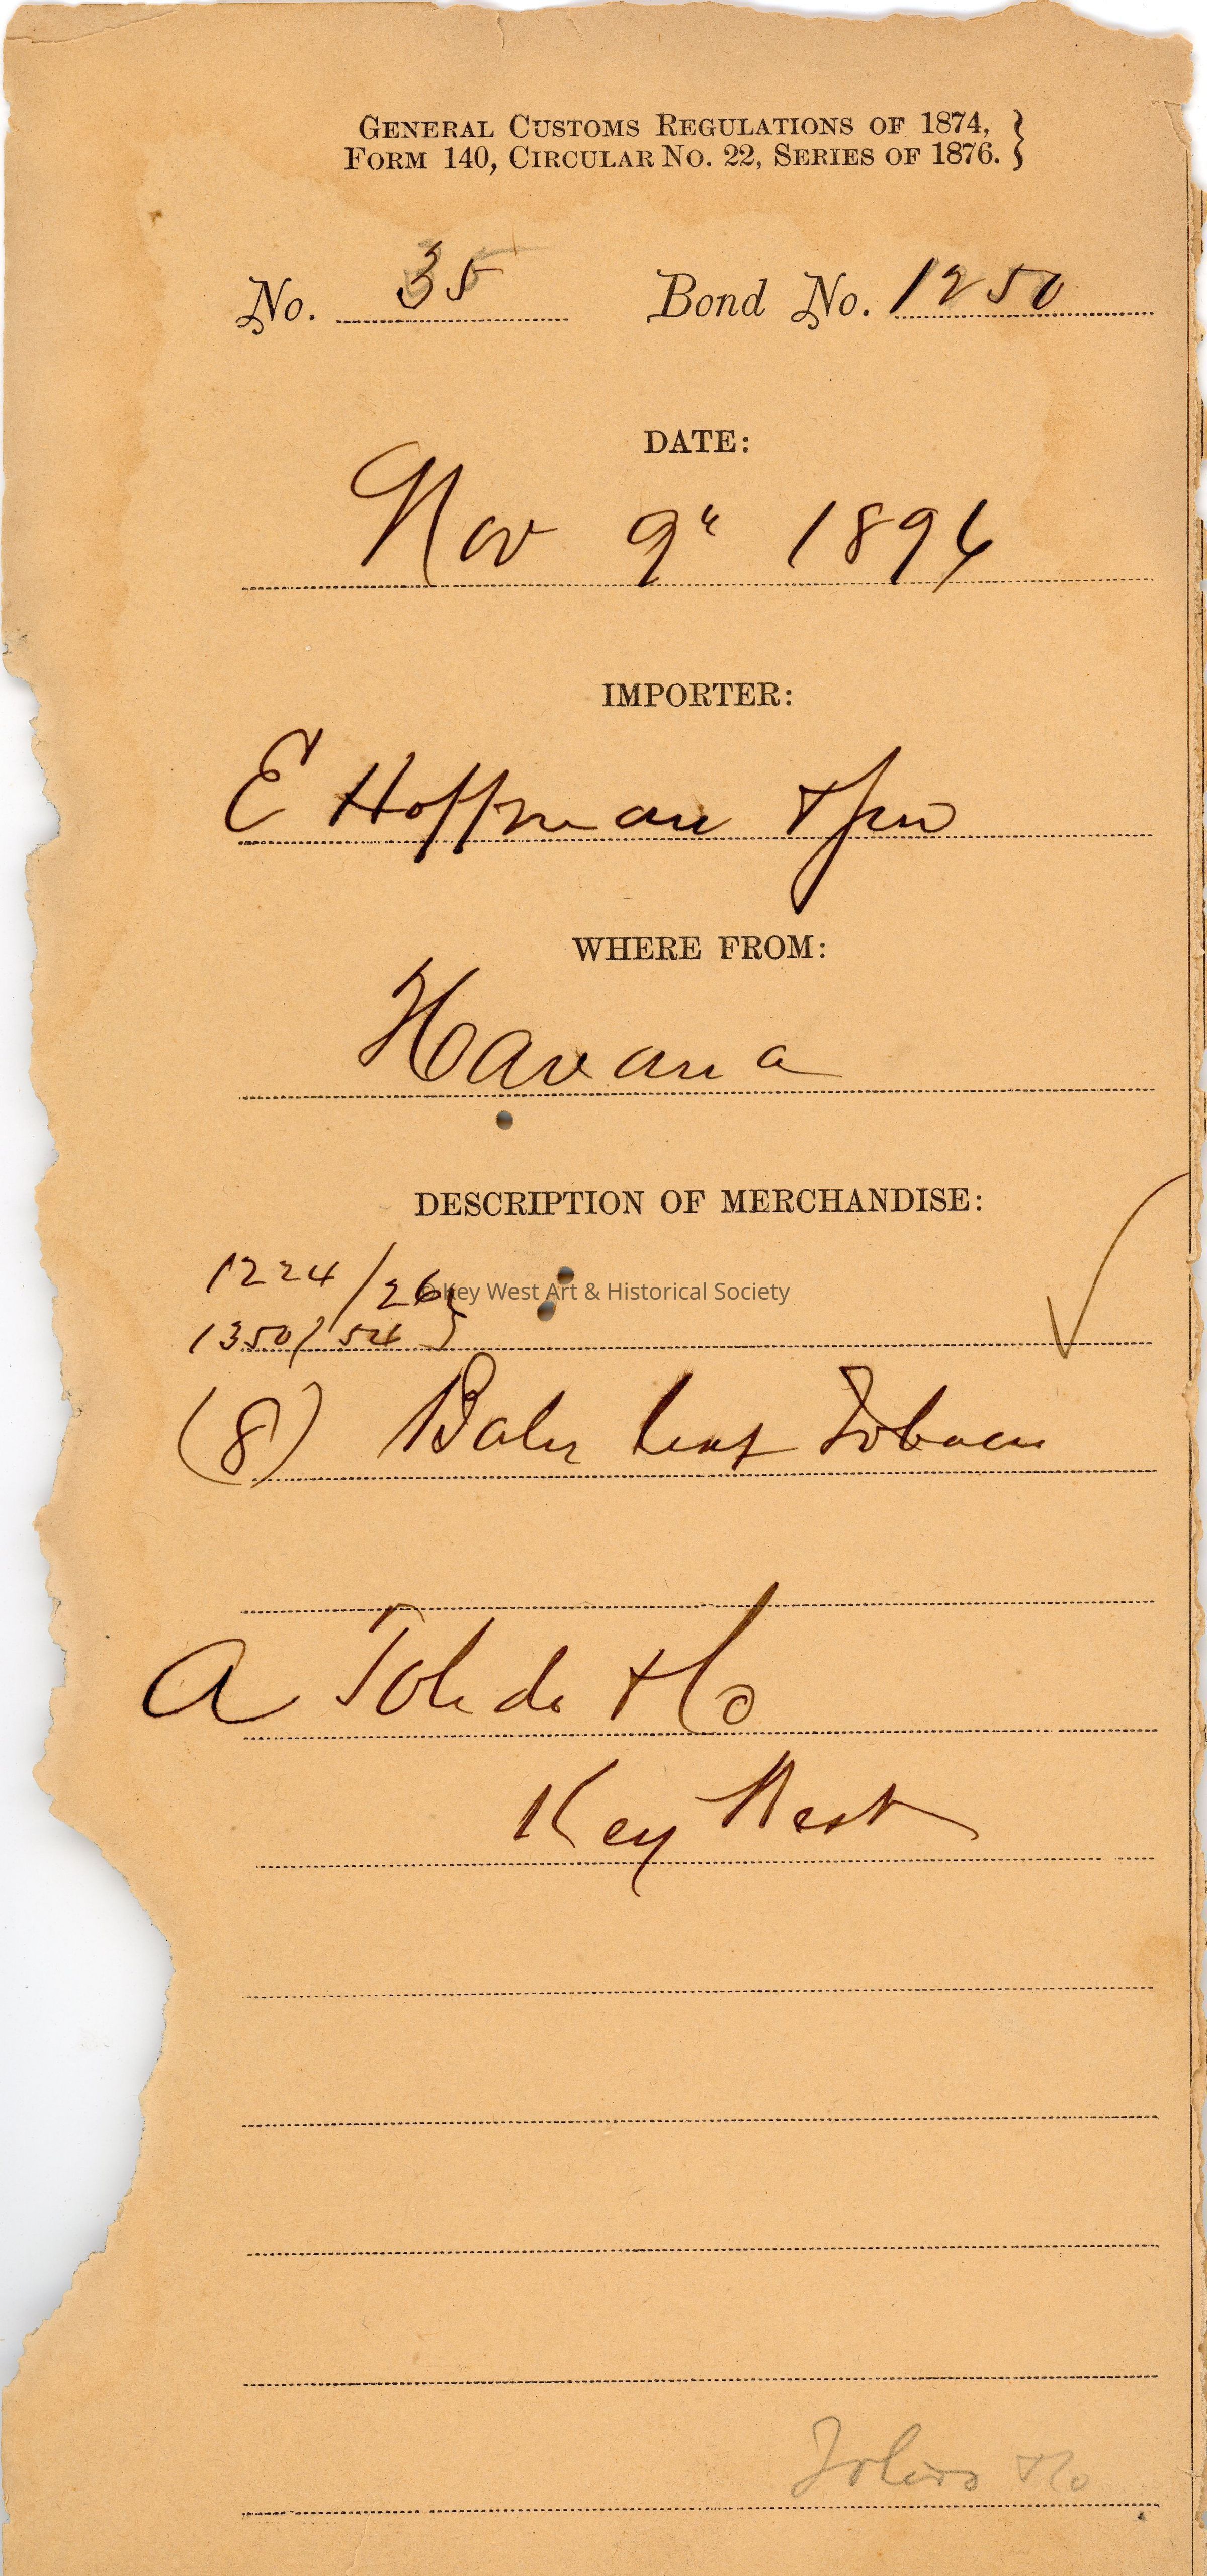 GENERAL CUSTOMS REGULATIONS OF 1874,
FORM 140, CIRCULAR NO. 22, SERIES OF 1876.
No. 35 Bond No. 1250
DATE:
Nov 9" 1894
IMPORTER:
E Hoffman & Son
WHERE FROM:
Havana
DESCRIPTION OF MERCHANDISE:
1224/26
© Key West Art & Historical Society
1350/54
(8) Bales leaf Tobacco
A Toledo & Co
Key West
& Co